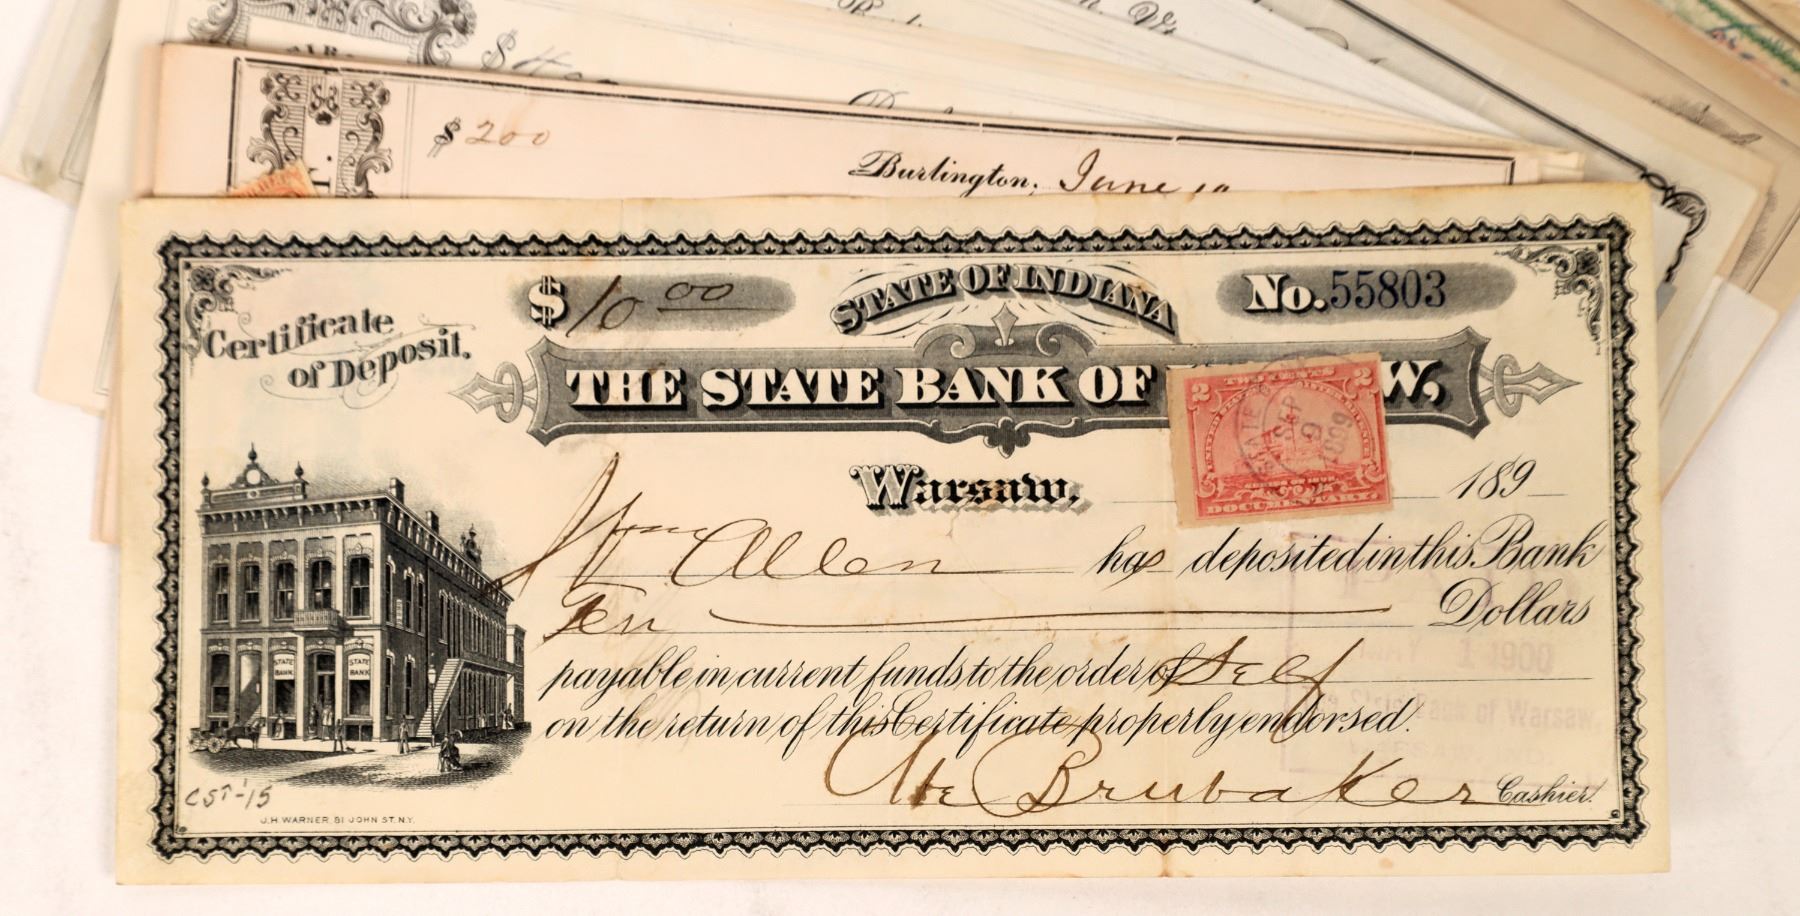 $ 200
Burlington, June
Certificate
of Deposit.
$ 10 00
STATE OF INDIANA
No. 55803
THE STATE BANK OF W,
2 TWO CENTS 2
DOCUMENTARY.
SEP
9
1899
Warsaw, 189
Wm Allen has deposited in this Bank
Ten Dollars
payable in current funds to the order of Self
on the return of this Certificate properly endorsed.
Brubaker Cashier.
STATE BANK
STATE BANK
1 1900
Bank of Warsaw,
CST-'15
J.H. WARNER 81 JOHN ST. N.Y.